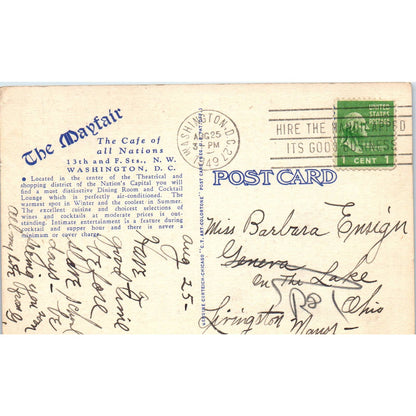 The Mayfair
The Cafe of
all Nations
13th and F. Sts., N. W.
WASHINGTON, D. C.
● Located in the centre of the Theatrical and
shopping district of the Nation's Capital you will
find a most Distinctive Dining Room and Cocktail
Lounge which is perfectly air-conditioned. The
warmest spot in Winter and the coolest in Summer.
The excellent cuisine and choicest selections of
wines and cocktails at moderate prices is out-
standing. Intimate entertainment during dinner,
cocktail and supper hour and there is never a
minimum or cover charge.
GENUINE CURTEICH-CHICAGO "C. T. ART-COLORTONE" POST CARD
WASHINGTON, D.C. 27
AUG 25
PM
1949
HIRE THE HANDICAPPED
ITS GOOD BUSINESS
UNITED STATES
POSTAGE
1 CENT 1
POST CARD
Aug 25-
Have
good time
before
Miss Barbara Ensign
Geneva
On The Lake
Ohio
Livingston Manor